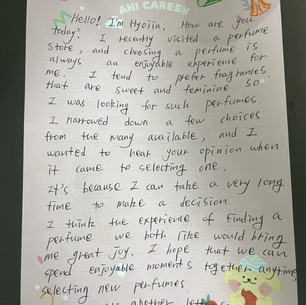 ANI CAREER
Hello! I'm Hyojin. How are you
today? I recently visited a perfume
store, and choosing a perfume is
always an enjoyable experience for
me. I tend to prefer fragrances
that are sweet and feminine. So
I was looking for such perfumes.
I narrowed down a few choices
from the many available, and I
wanted to hear your opinion when
it came to selecting one.
It's because I can take a very long
time to make a decision
I think the experience of finding a
perfume we both like would bring
me great joy. I hope that we can
spend enjoyable moments together anytime
selecting new perfumes.
another